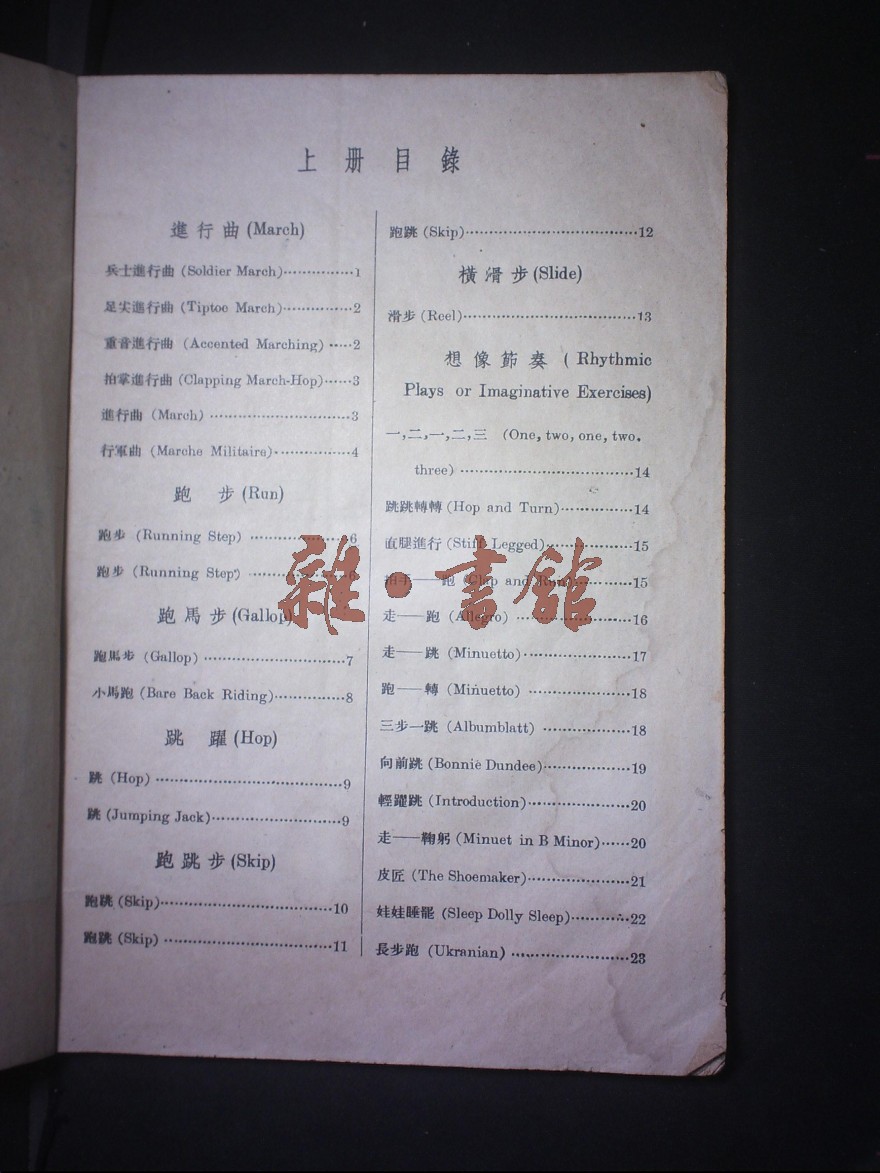 上册目錄
進行曲 (March)
兵士進行曲 (Soldier March)················1
足尖進行曲 (Tiptoe March)················2
重音進行曲 (Accented Marching) ·····2
拍掌進行曲 (Clapping March-Hop)······3
進行曲 (March) ································3
行軍曲 (Marche Militaire)·················4
跑 步 (Run)
跑步 (Running Step) ······················6
跑步 (Running Step) ······················
跑馬步 (Gallop)
跑馬步 (Gallop) ································7
小馬跑 (Bare Back Riding)················8
跳 躍 (Hop)
跳 (Hop) ··········································9
跳 (Jumping Jack)·····························9
跑跳步 (Skip)
跑跳 (Skip)·······································10
跑跳 (Skip) ······································11
跑跳 (Skip)·······································12
橫滑步 (Slide)
滑步 (Reel)·······································13
想像節奏 ( Rhythmic
Plays or Imaginative Exercises)
一,二,一,二,三 (One, two, one, two.
three) ·······································14
跳跳轉轉 (Hop and Turn)·················14
直腿進行 (Stiff Legged)···················15
拍手——跑 (Clap and Run)··············15
走——跑 (Allegro) ·························16
走——跳 (Minuetto)························17
跑——轉 (Minuetto) ······················18
三步一跳 (Albumblatt) ···················18
向前跳 (Bonnie Dundee)··················19
輕躍跳 (Introduction)·······················20
走——鞠躬 (Minuet in B Minor)······20
皮匠 (The Shoemaker)······················21
娃娃睡罷 (Sleep Dolly Sleep)············22
長步跑 (Ukranian) ··························23
雜·書館